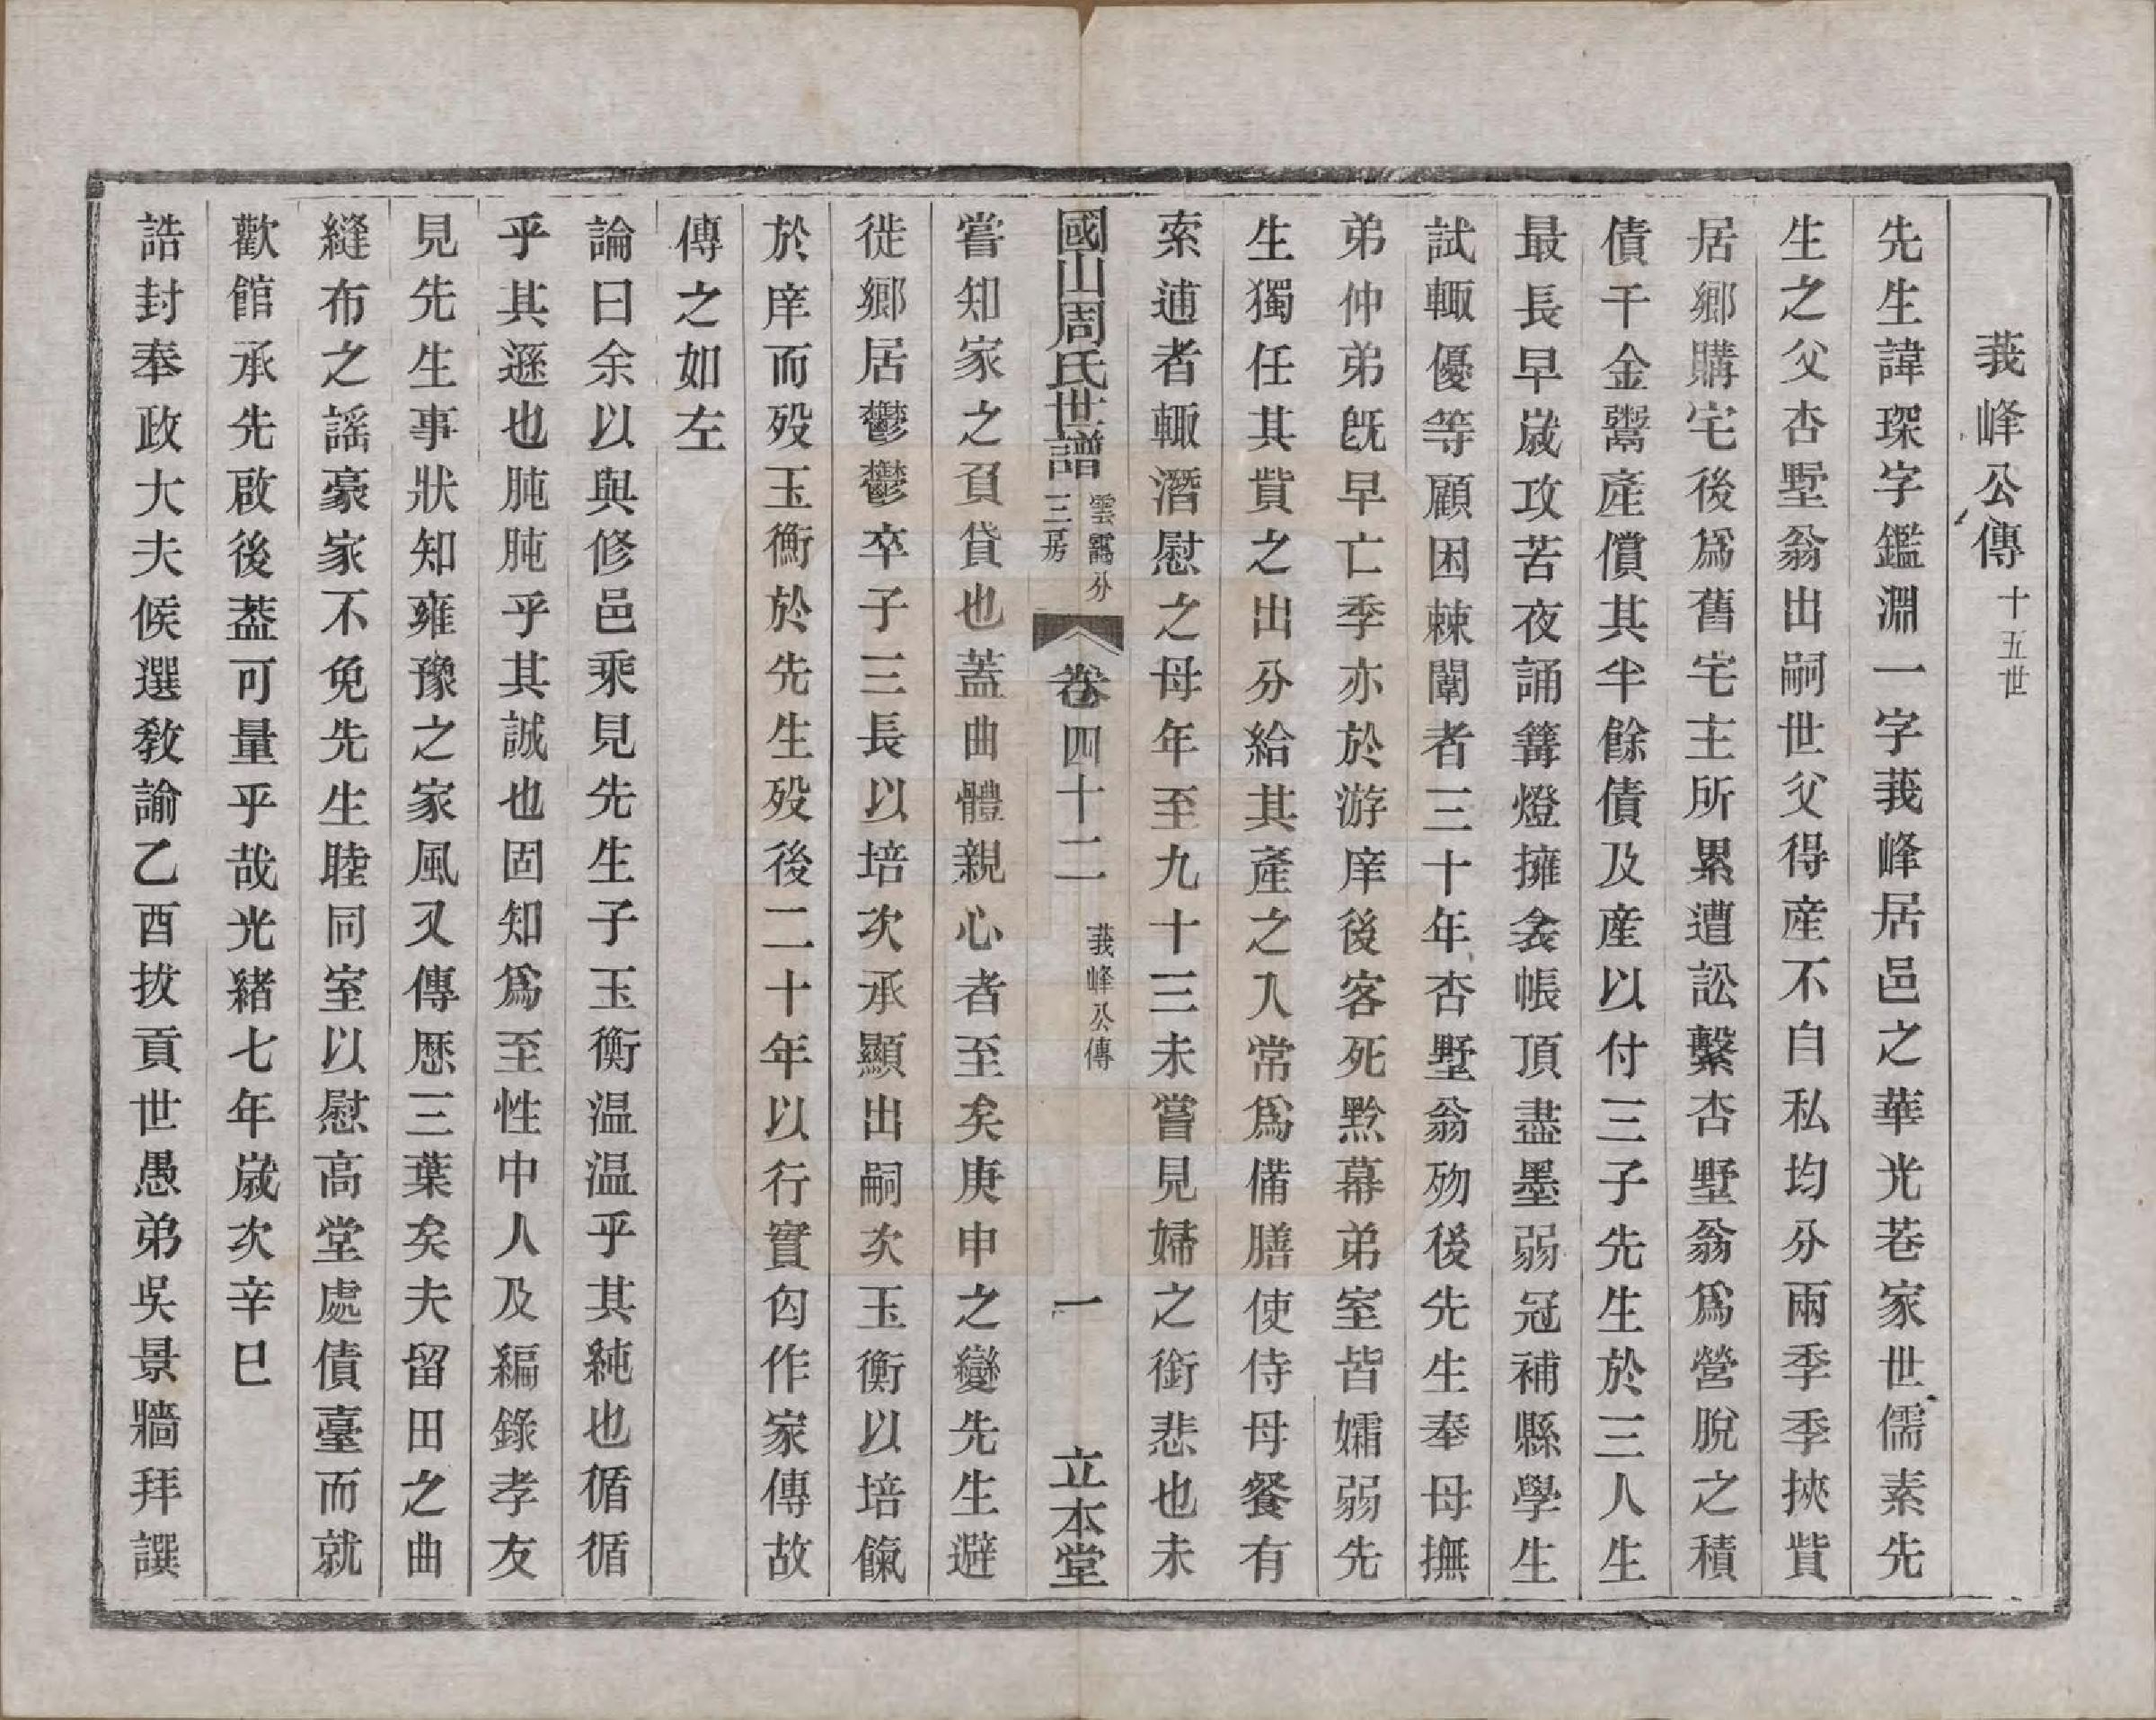 莪峰公傳十五世
先生諱琛字鑑淵一字莪峰居邑之華光巷家世儒素先
生之父杏墅翁出嗣世父得産不自私均分兩季季挾貲
居鄉購宅後爲舊宅主所累遭訟繫杏墅翁爲營脫之積
債千金鬻産償其半餘債及産以付三子先生於三人生
最長早歲攻苦夜誦篝燈擁衾帳頂盡墨弱冠補縣學生
試輒優等顧困棘闈者三十年杏墅翁歾後先生奉母撫
弟仲弟旣早亡季亦於游庠後客死黔幕弟室皆孀弱先
生獨任其貲之出分給其產之入常爲備膳使侍母餐有
索逋者輒潛慰之母年至九十三未嘗見婦之銜悲也未
國山周氏世譜 雲靄分三房 卷四十二 莪峰公傳 一 立本堂
嘗知家之負貸也蓋曲體親心者至矣庚申之變先生避
徙鄉居鬱鬱卒子三長以培次承顯出嗣次玉衡以培餼
於庠而殁玉衡於先生殁後二十年以行實匄作家傳故
傳之如左
論曰余以與修邑乘見先生子玉衡温温乎其純也循循
乎其遜也肫肫乎其誠也固知爲至性中人及編錄孝友
見先生事狀知雍豫之家風又傳厯三葉矣夫留田之曲
縫布之謠豪家不免先生睦同室以慰高堂處債臺而就
歡館承先啟後葢可量乎哉光緒七年歲次辛巳
誥封奉政大夫候選教諭乙酉拔貢世愚弟吳景牆拜譔